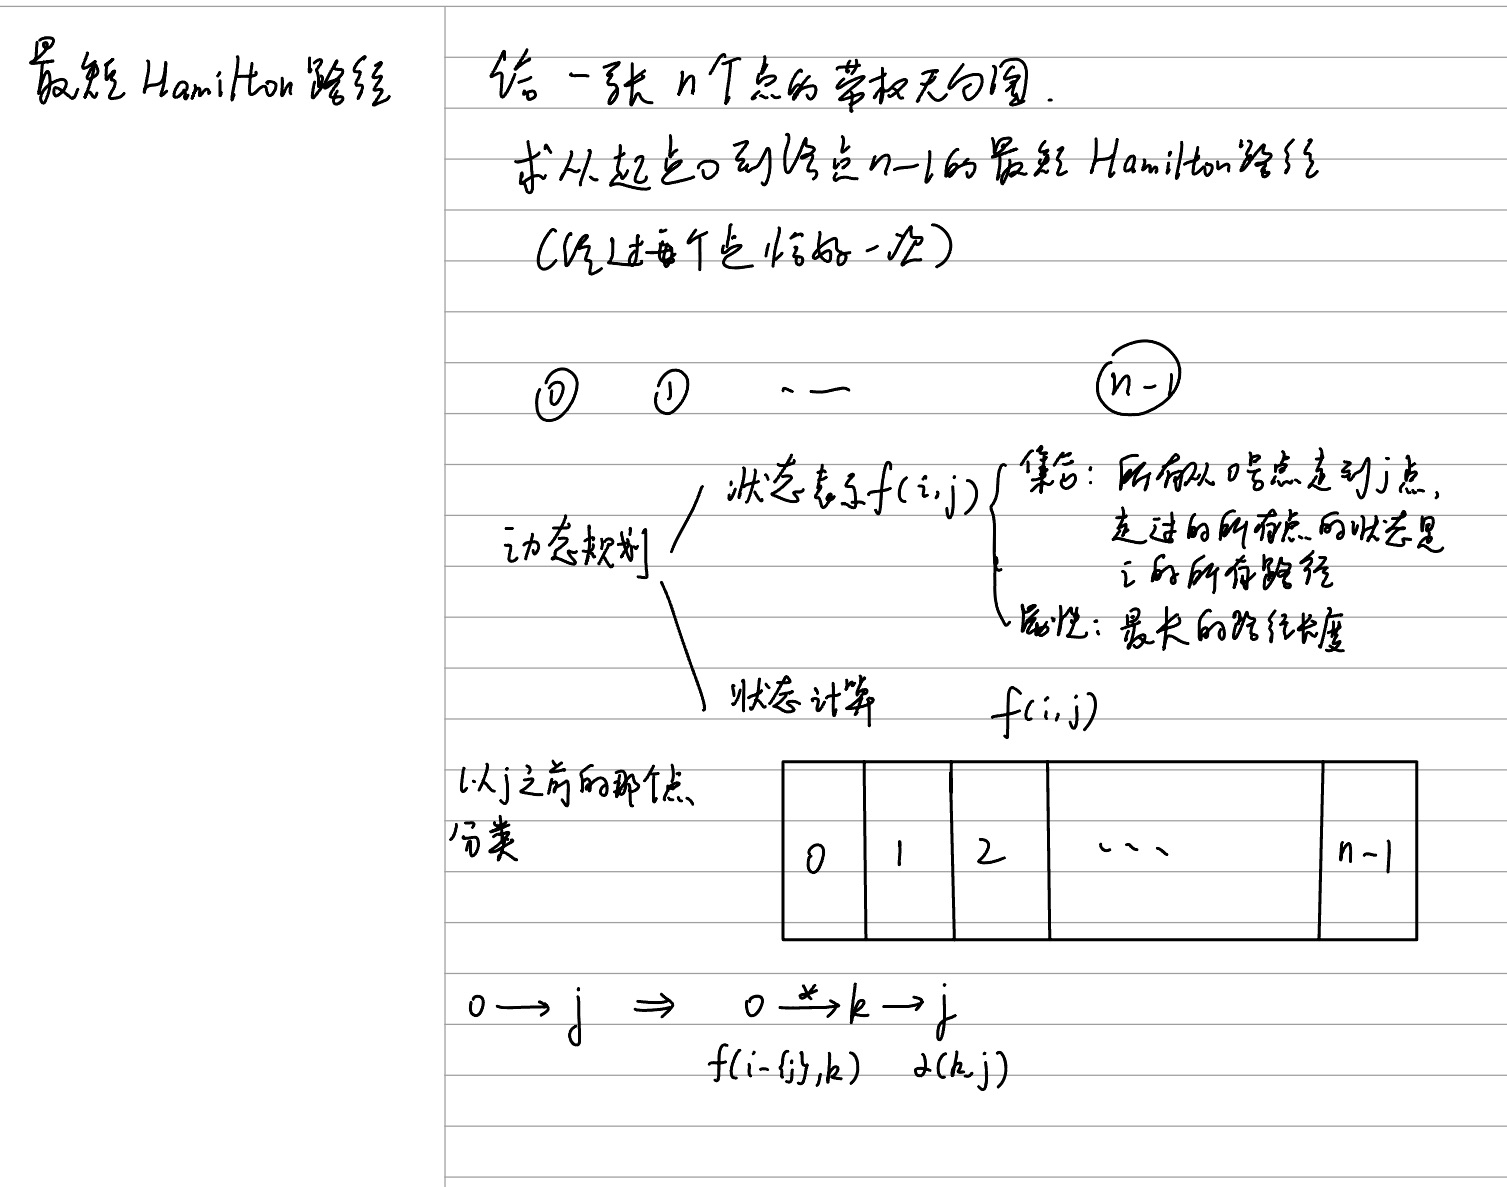 最短 Hamilton 路径
给一张 n 个点的带权无向图.
求从起点0到终点n-1的最短 Hamilton路径
(经过每个点恰好一次)
0 1 ... n-1
动态规划
状态表示 f(i,j)
集合: 所有从0号点走到j点,
走过的所有点的状态是
i 的所有路径
属性: 最长的路径长度
状态计算 f(i,j)
以j之前的那个点
分类
0 1 2 ... n-1
0 → j ⇒ 0 →* k → j
f(i-{j},k) d(k,j)